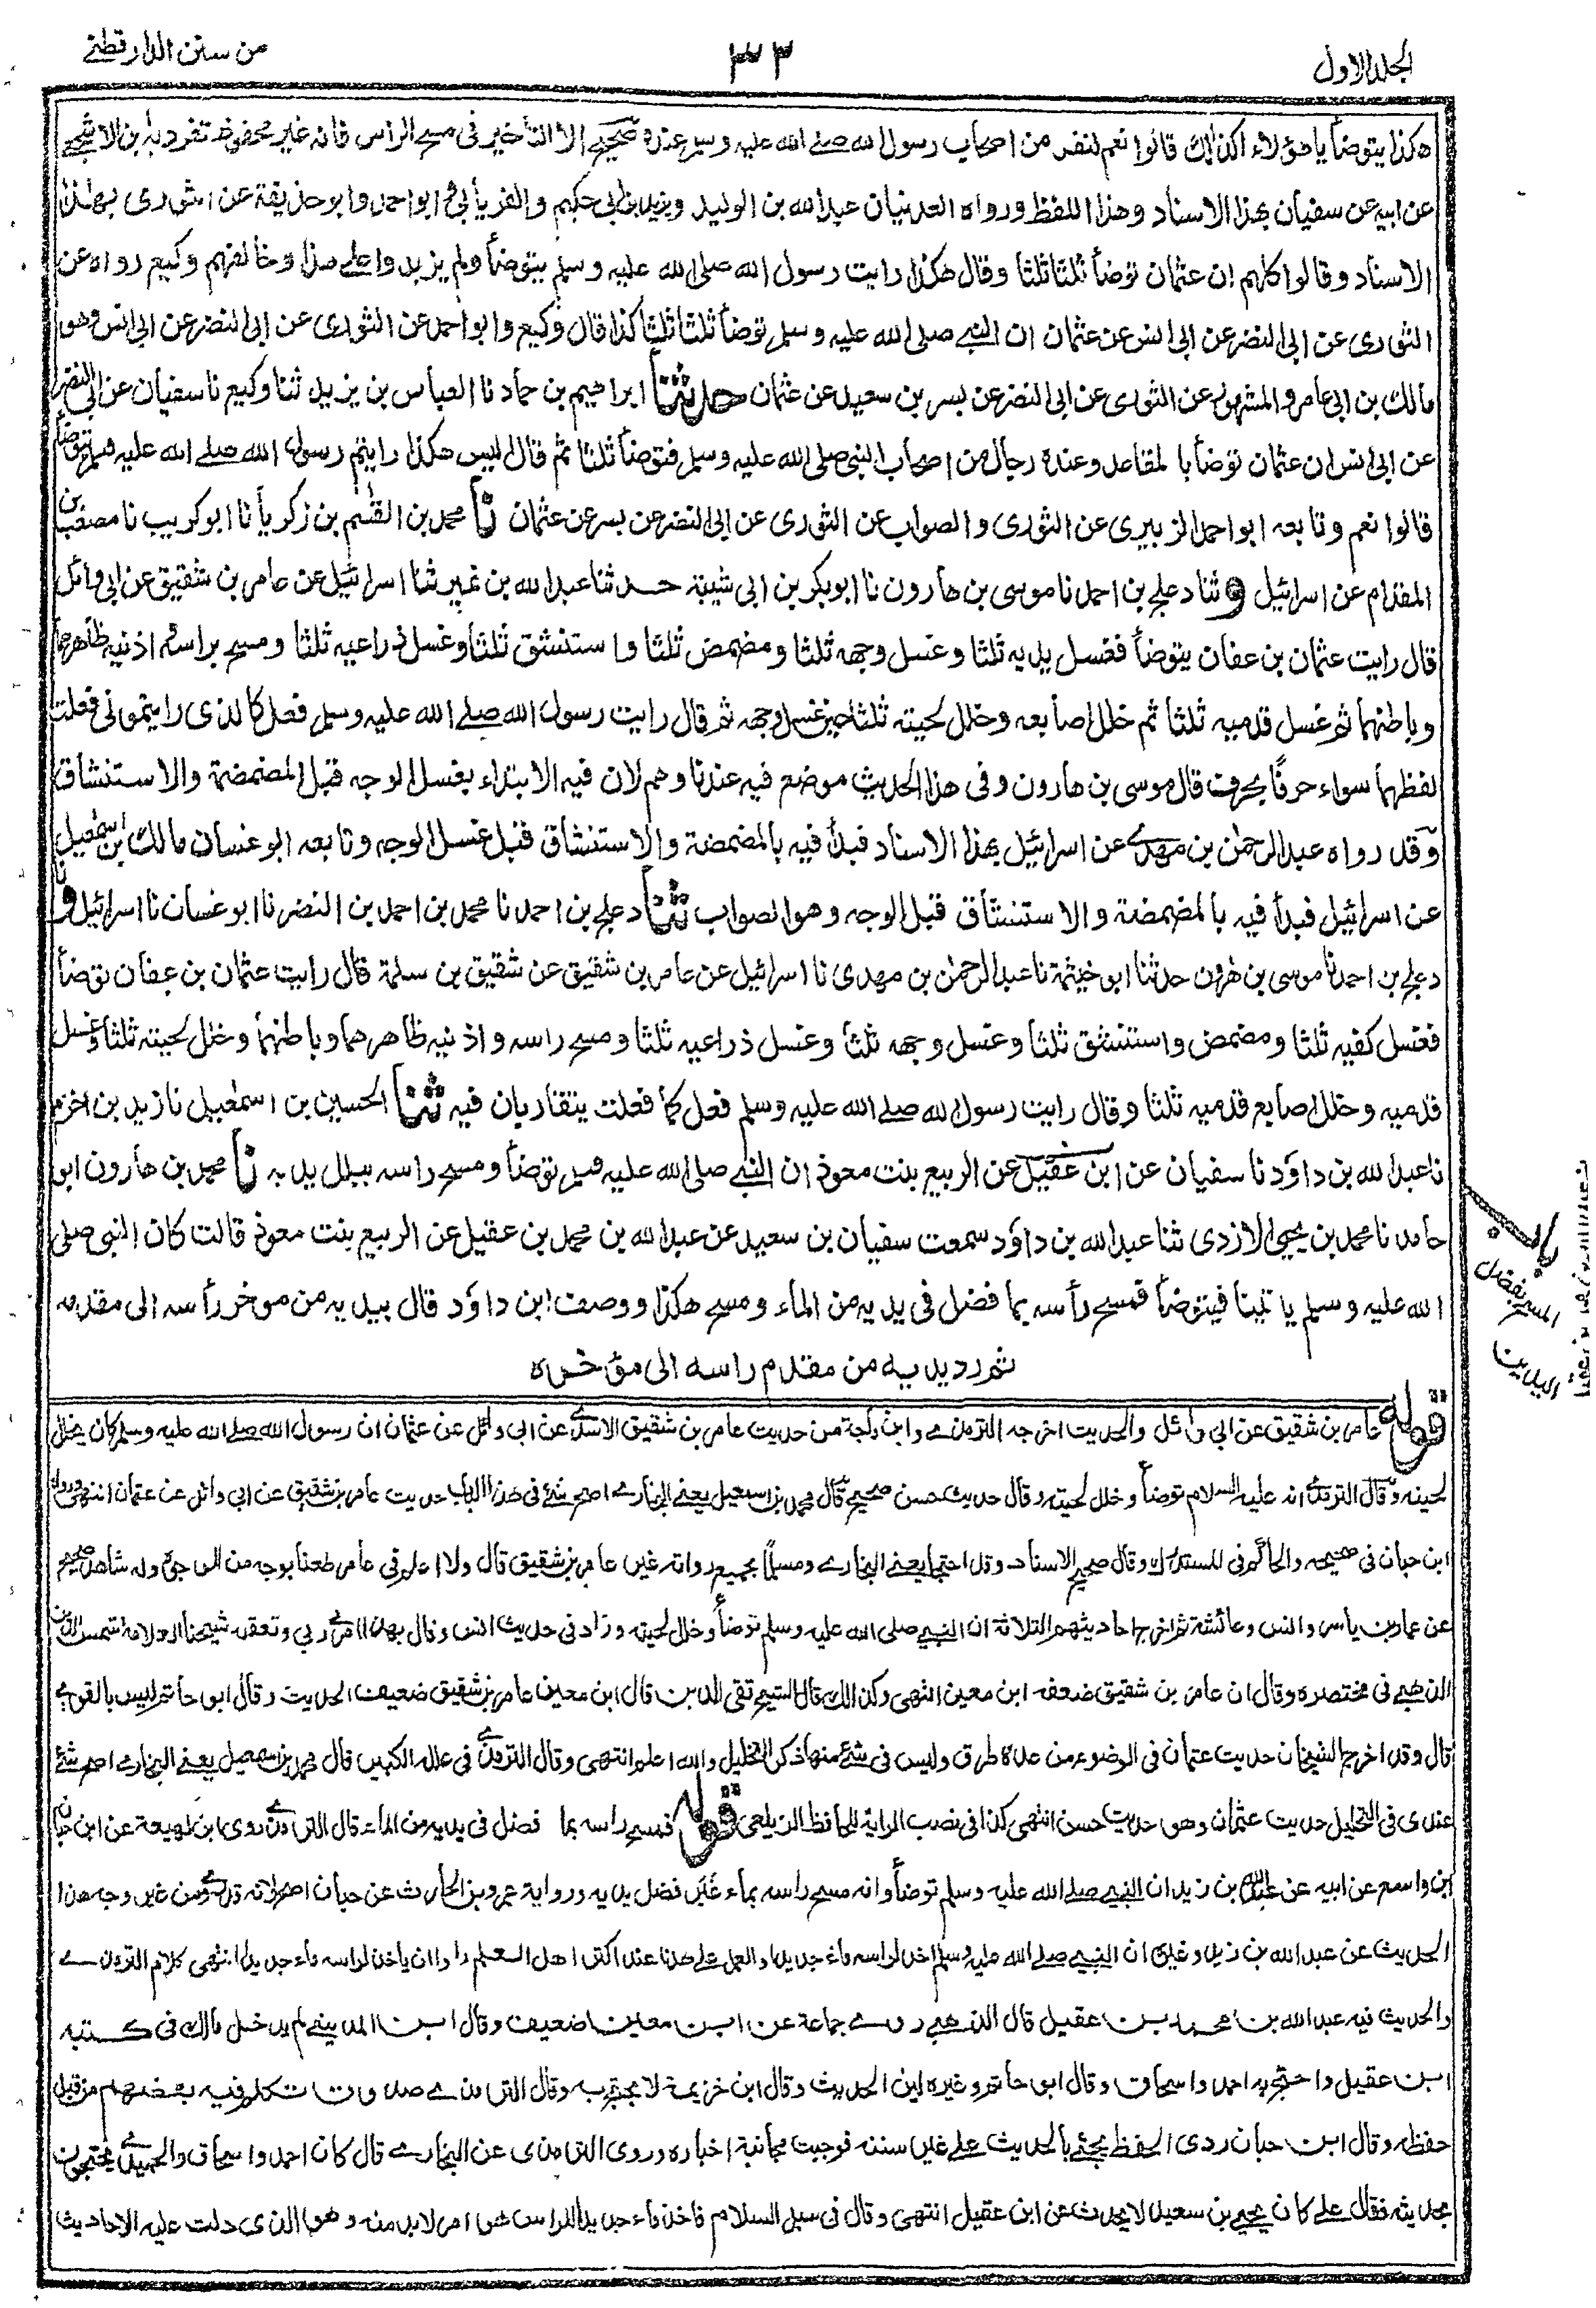 الجلد الاول
٣٣
من سنن الدارقطنے
هكذا يتوضأ يا هؤلاء اكذلك قالوا نعم لنفر من اصحاب رسول الله صلے الله عليه وسلم عنده صحيح الا التأخير فى مسح الراس فانه غير محفوظ تفرد به ابن الاشجعے
عن ابيه عن سفيان بهذا الاسناد وهذا اللفظ ورواه العدنيان عبد الله بن الوليد ويزيد بن ابى حكيم والفريابى وابو احمد وابو حذيفة عن الثورى بهذا
الاسناد وقالوا كلهم ان عثمان توضأ ثلثا ثلثا وقال هكذا رايت رسول الله صلى الله عليه وسلم يتوضأ ولم يزيدوا علے هذا وخالفهم وكيع رواه عن
الثورى عن ابى النضر عن ابى انس عن عثمان ان النبے صلى الله عليه وسلم توضأ ثلثا ثلثا كذا قال وكيع وابو احمد عن الثورى عن ابى النضر عن ابى انس وهو
مالك بن ابى عامر والمشهور عن الثورى عن ابى النضر عن بسر بن سعيد عن عثمان حدثنا ابراهيم بن حماد نا العباس بن يزيد ثنا وكيع نا سفيان عن ابى النضر
عن ابى انس ان عثمان توضأ بالمقاعد وعنده رجال من اصحاب النبى صلى الله عليه وسلم فتوضأ ثلثا ثم قال اليس هكذا رايتم رسول الله صلے الله عليه وسلم يتوضأ
قالوا نعم وتابعه ابو احمد الزبيرى عن الثورى والصواب عن الثورى عن ابى النضر عن بسر عن عثمان نا محمد بن القسم بن زكريا نا ابو كريب نا مصعب بن
المقدام عن اسرائيل و ثنا دعلج بن احمد نا موسى بن هارون نا ابو بكر بن ابى شيبة حدثنا عبد الله بن نمير ثنا اسرائيل عن عامر بن شقيق عن ابى وائل
قال رايت عثمان بن عفان يتوضأ فغسل يديه ثلثا وغسل وجهه ثلثا ومضمض ثلثا واستنشق ثلثا وغسل ذراعيه ثلثا ومسح براسه اذنيه ظاهرهما
وباطنهما ثم غسل قدميه ثلثا ثم خلل اصابعه وخلل لحيته ثلثا حين غسل وجهه ثم قال رايت رسول الله صلے الله عليه وسلم فعل كالذى رايتمونى فعلت
لفظهما سواء حرفًا بحرف قال موسى بن هارون وفى هذا الحديث موضع فيه عندنا وهم لان فيه الابتداء بغسل الوجه قبل المضمضة والاستنشاق
وقد رواه عبد الرحمن بن مهدے عن اسرائيل بهذا الاسناد فبدأ فيه بالمضمضة والاستنشاق قبل غسل الوجه وتابعه ابو غسان مالك بن اسمعيل
عن اسرائيل فبدأ فيه بالمضمضة والاستنشاق قبل الوجه وهو الصواب ثنا دعلج بن احمد نا محمد بن احمد بن النضر نا ابو غسان نا اسرائيل ونا
دعلج بن احمد نا موسى بن هرون حدثنا ابو خيثمة نا عبد الرحمن بن مهدى نا اسرائيل عن عامر بن شقيق عن شقيق بن سلمة قال رايت عثمان بن عفان توضأ
فغسل كفيه ثلثا ومضمض واستنشق ثلثا وغسل وجهه ثلثا وغسل ذراعيه ثلثا ومسح راسه واذنيه ظاهرهما وباطنهما وخلل لحيته ثلثا وغسل
قدميه وخلل اصابع قدميه ثلثا وقال رايت رسول الله صلے الله عليه وسلم فعل كما فعلت يتقاربان فيه ثنا الحسين بن اسمعيل نا زيد بن اخزم
نا عبد الله بن داؤد نا سفيان عن ابن عقيل عن الربيع بنت معوذ ان النبے صلى الله عليه وسلم توضأ ومسح راسه ببلل يديه نا محمد بن هارون ابو
حامد نا محمد بن يحيى الازدى ثنا عبد الله بن داؤد سمعت سفيان بن سعيد عن عبد الله بن محمد بن عقيل عن الربيع بنت معوذ قالت كان النبى صلى
الله عليه وسلم ياتينا فيتوضأ فمسح رأسه بما فضل فى يديه من الماء ومسح هكذا ووصف ابن داؤد قال بيديه من موخر رأسه الى مقدمه
ثم رد يديه من مقدم راسه الى مؤخره
باب
المسح بفضل
اليدين
قوله عامر بن شقيق عن ابى وائل والحديث اخرجه الترمذے وابن ماجة من حديث عامر بن شقيق الاسدے عن ابى وائل عن عثمان ان رسول الله صلے الله عليه وسلم كان يخلل
لحيته وقال الترمذے انه عليه السلام توضأ وخلل لحيته وقال حديث حسن صحيح قال محمد بن اسمعيل يعنے البخارے اصح شئے فى هذا الباب حديث عامر بن شقيق عن ابى وائل عن عثمان انتهى ورواه
ابن حبان فى صحيحه والحاكم فى المستدرك وقال صحيح الاسناد وقد احتجا يعنے البخارے ومسلما بجميع رواته غير عامر بن شقيق قال ولا اعلم فى عامر طعنا بوجه من الوجوه وله شاهد صحيح
عن عمار بن ياسر وانس وعائشة ثم اخرج احاديثهم الثلاثة ان النبے صلى الله عليه وسلم توضأ وخلل لحيته وزاد فى حديث انس وقال بهذا امرنے ربى وتعقبه شيخنا العلامة شمس الدين
الذهبے فى مختصره وقال ان عامر بن شقيق ضعفه ابن معين انتهى وكذلك قال الشيخ تقى الدين قال ابن معين عامر بن شقيق ضعيف الحديث وقال ابو حاتم ليس بالقوے
قال وقد اخرج الشيخان حديث عثمان فى الوضوء من عدة طرق وليس فى شئ منها ذكر التخليل والله اعلم انتهى وقال الترمذے فى علله الكبير قال محمد بن اسمعيل يعنے البخارے اصح شئے
عندى فى التخليل حديث عثمان وهو حديث حسن انتهى كذا فى نصب الراية للحافظ الزيلعى قوله فمسح راسه بما فضل فى يديه من الماء قال الترمذے روى ابن لهيعة عن ابن حبان
ابن واسع عن ابيه عن عبد الله بن زيد ان النبے صلے الله عليه وسلم توضأ وانه مسح راسه بماء غبر فضل يديه ورواية عمرو بن الحارث عن حبان اصح لانه قد روے من غير وجه هذا
الحديث عن عبد الله بن زيد وغيره ان النبے صلے الله عليه وسلم اخذ لراسه ماء جديدا والعمل علے هذا عند اكثر اهل العلم راوا ان ياخذ لراسه ماء جديدا انتهى كلام الترمذے
والحديث فيه عبد الله بن محمد بن عقيل قال الذهبے روے جماعة عن ابن معين ضعيف وقال ابن المدينے لم يدخل مالك فى كتبه
ابن عقيل واحتج به احمد واسحاق وقال ابو حاتم وغيره لين الحديث وقال ابن خزيمة لا يحتج به وقال الترمذے صدوق تكلم فيه بعضهم من قبل
حفظه وقال ابن حبان ردى الحفظ يجئ بالحديث علے غير سننه فوجبت مجانبة اخباره وروى الترمذى عن البخارے قال كان احمد واسحاق والحميدے يحتجون
بحديثه فقال علے كان يحيے بن سعيد لا يحدث عن ابن عقيل انتهى وقال فى سبل السلام فاخذ ماء جديد للراس هو امر لابد منه وهو الذى دلت عليه الاحاديث